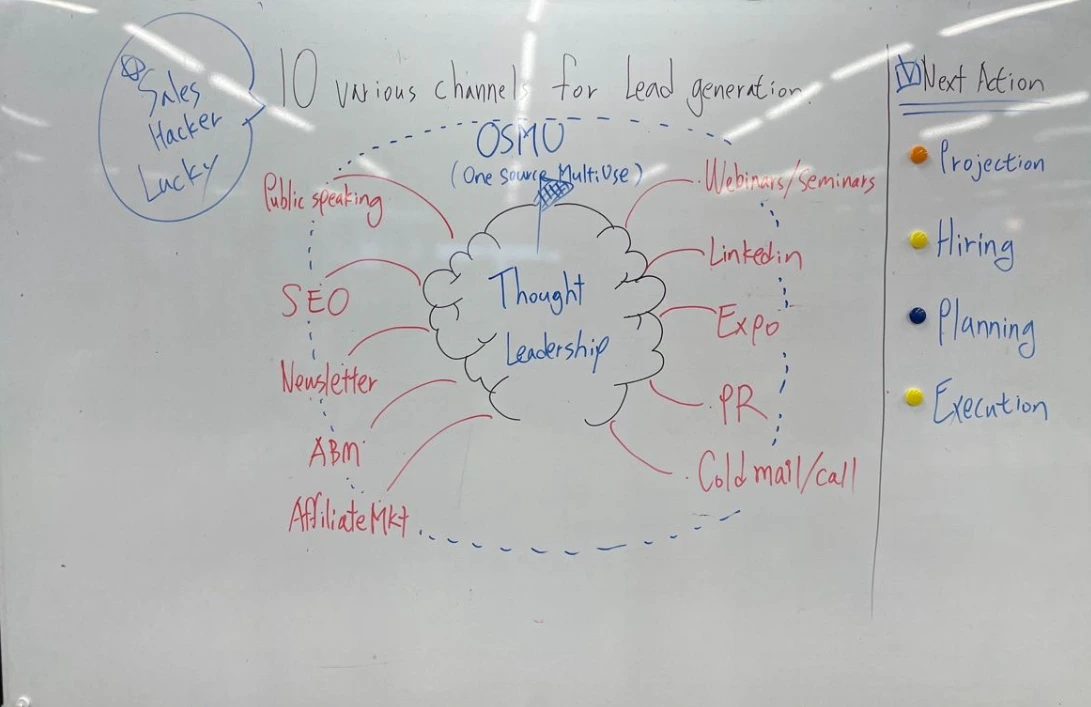 Sales
Hacker
Lucky
10 various channels for Lead generation.
OSMU
(One source MultiUse)
Thought
Leadership
Public speaking
SEO
Newsletter
ABM
Affiliate Mkt
Webinars/seminars
Linkedin
Expo
PR
Cold mail/call
Next Action
Projection
Hiring
Planning
Execution